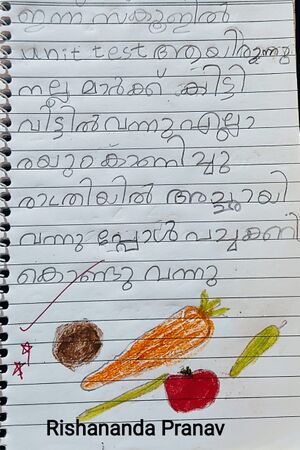 ഇന്ന് സ്ക്കൂളിൽ
unit test ആയിരുന്നു
നല്ല മാർക്ക് കിട്ടി
വീട്ടിൽ വന്നു എല്ലാ
രയും കാണിച്ചു
രാത്രിയിൽ അച്ഛായി
വന്നപ്പോൾ പച്ചക്കറി
കൊണ്ടു വന്നു
Rishananda Pranav